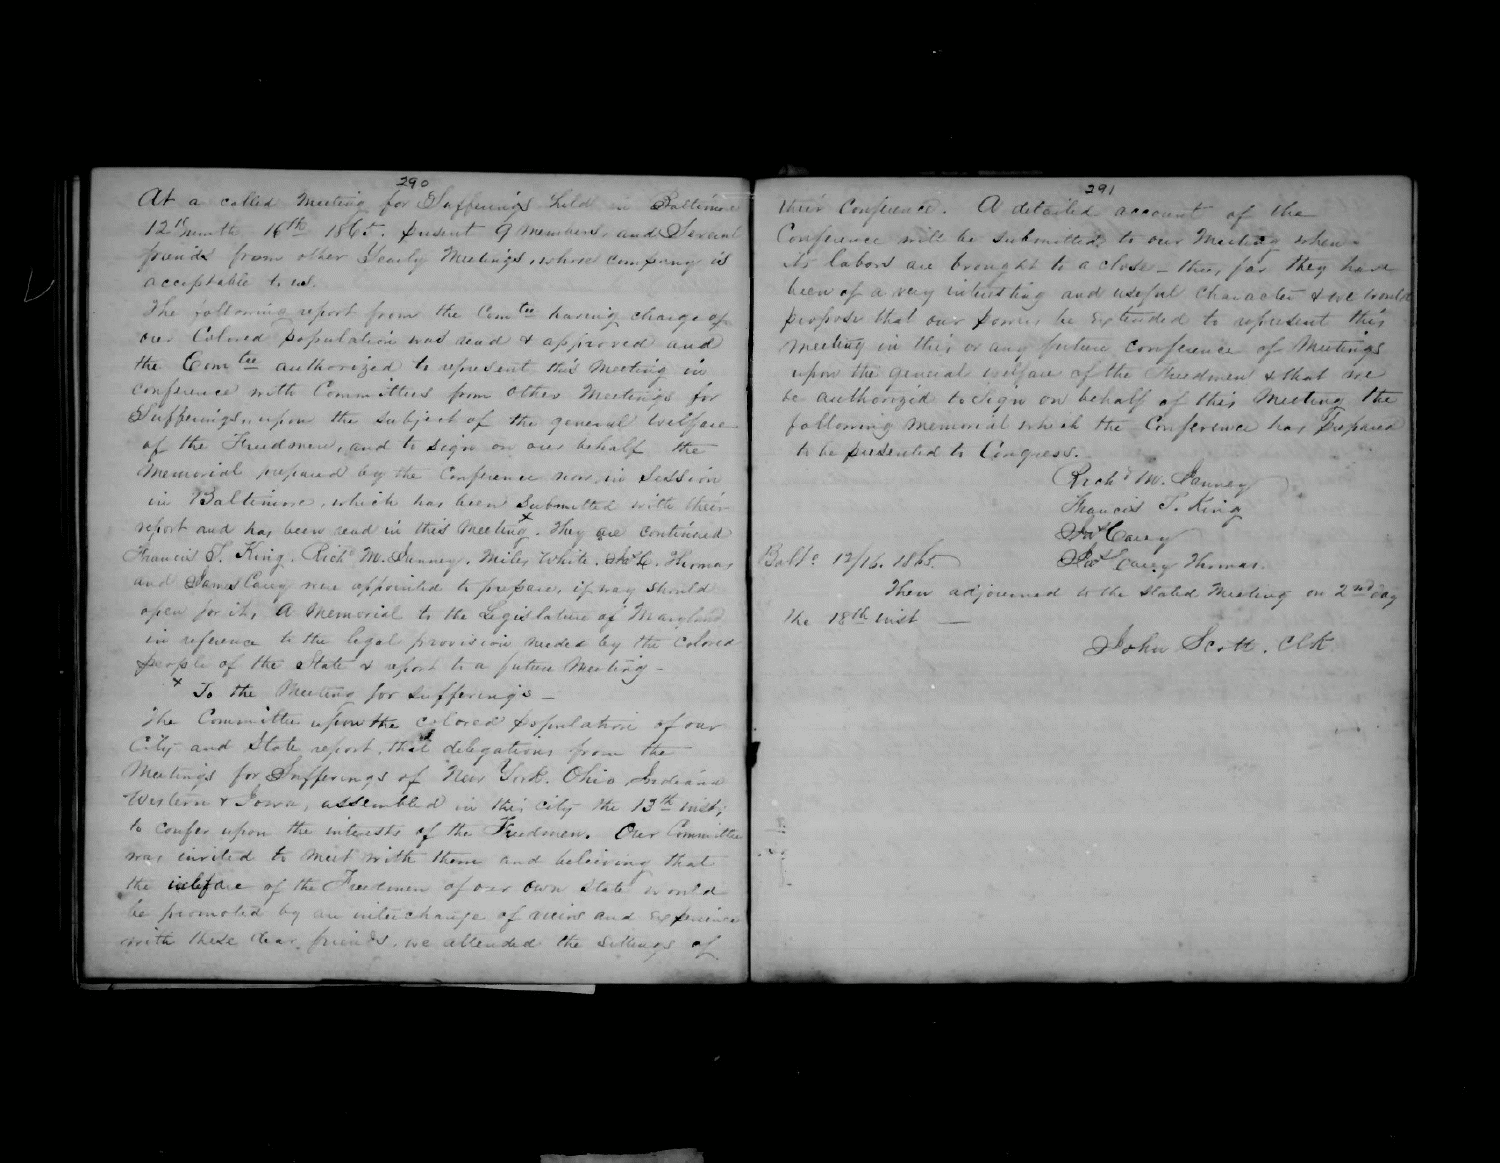 290
At a called Meeting for Sufferings held in Baltimore
12th month 16th 1865. present 9 members, and Several
friends from other Yearly Meetings, whose company is
acceptable to us.
The following report from the Comtee having charge of
our Colored population was read & approved and
the Comtee authorized to represent this Meeting in
conference with Committees from other Meetings for
Sufferings, upon the subject of the general welfare
of the Freedmen, and to sign on our behalf the
Memorial prepared by the Conference now in Session
in Baltimore, which has been submitted with their
report and has been read in this Meeting x. They are continued
Francis T. King, Richd M. Janney, Miles White, Jas C. Thomas
and James Carey were appointed to prepare, if way should
open for it, A Memorial to the Legislature of Maryland
in reference to the legal provision needed by the Colored
people of the State & report to a future Meeting -
x To the Meeting for Sufferings -
The Committee upon the colored population of our
City and State report, that delegations from the
Meetings for Sufferings of New York, Ohio, Indiana
Western & Iowa, assembled in this city the 13th inst,
to confer upon the interests of the Freedmen. Our Committee
was invited to meet with them and believing that
the welfare of the Freedmen of our own State would
be promoted by an interchange of views and experience
with these dear friends, we attended the sittings of
291
their Conference. A detailed account of the
Conference will be submitted to our Meeting when
its labors are brought to a close - thus far they have
been of a very interesting and useful character & we would
propose that our powers be extended to represent this
Meeting in this or any future conference of Meetings
upon the general welfare of the Freedmen & that we
be authorized to sign on behalf of this Meeting the
following memorial which the Conference has prepared
to be presented to Congress.
Richd M. Janney
Francis T. King
Jas Carey
Balto 12/16. 1865. Jas Carey Thomas.
Then adjourned to the stated Meeting on 2nd day
the 18th inst —
John Scott. Clk